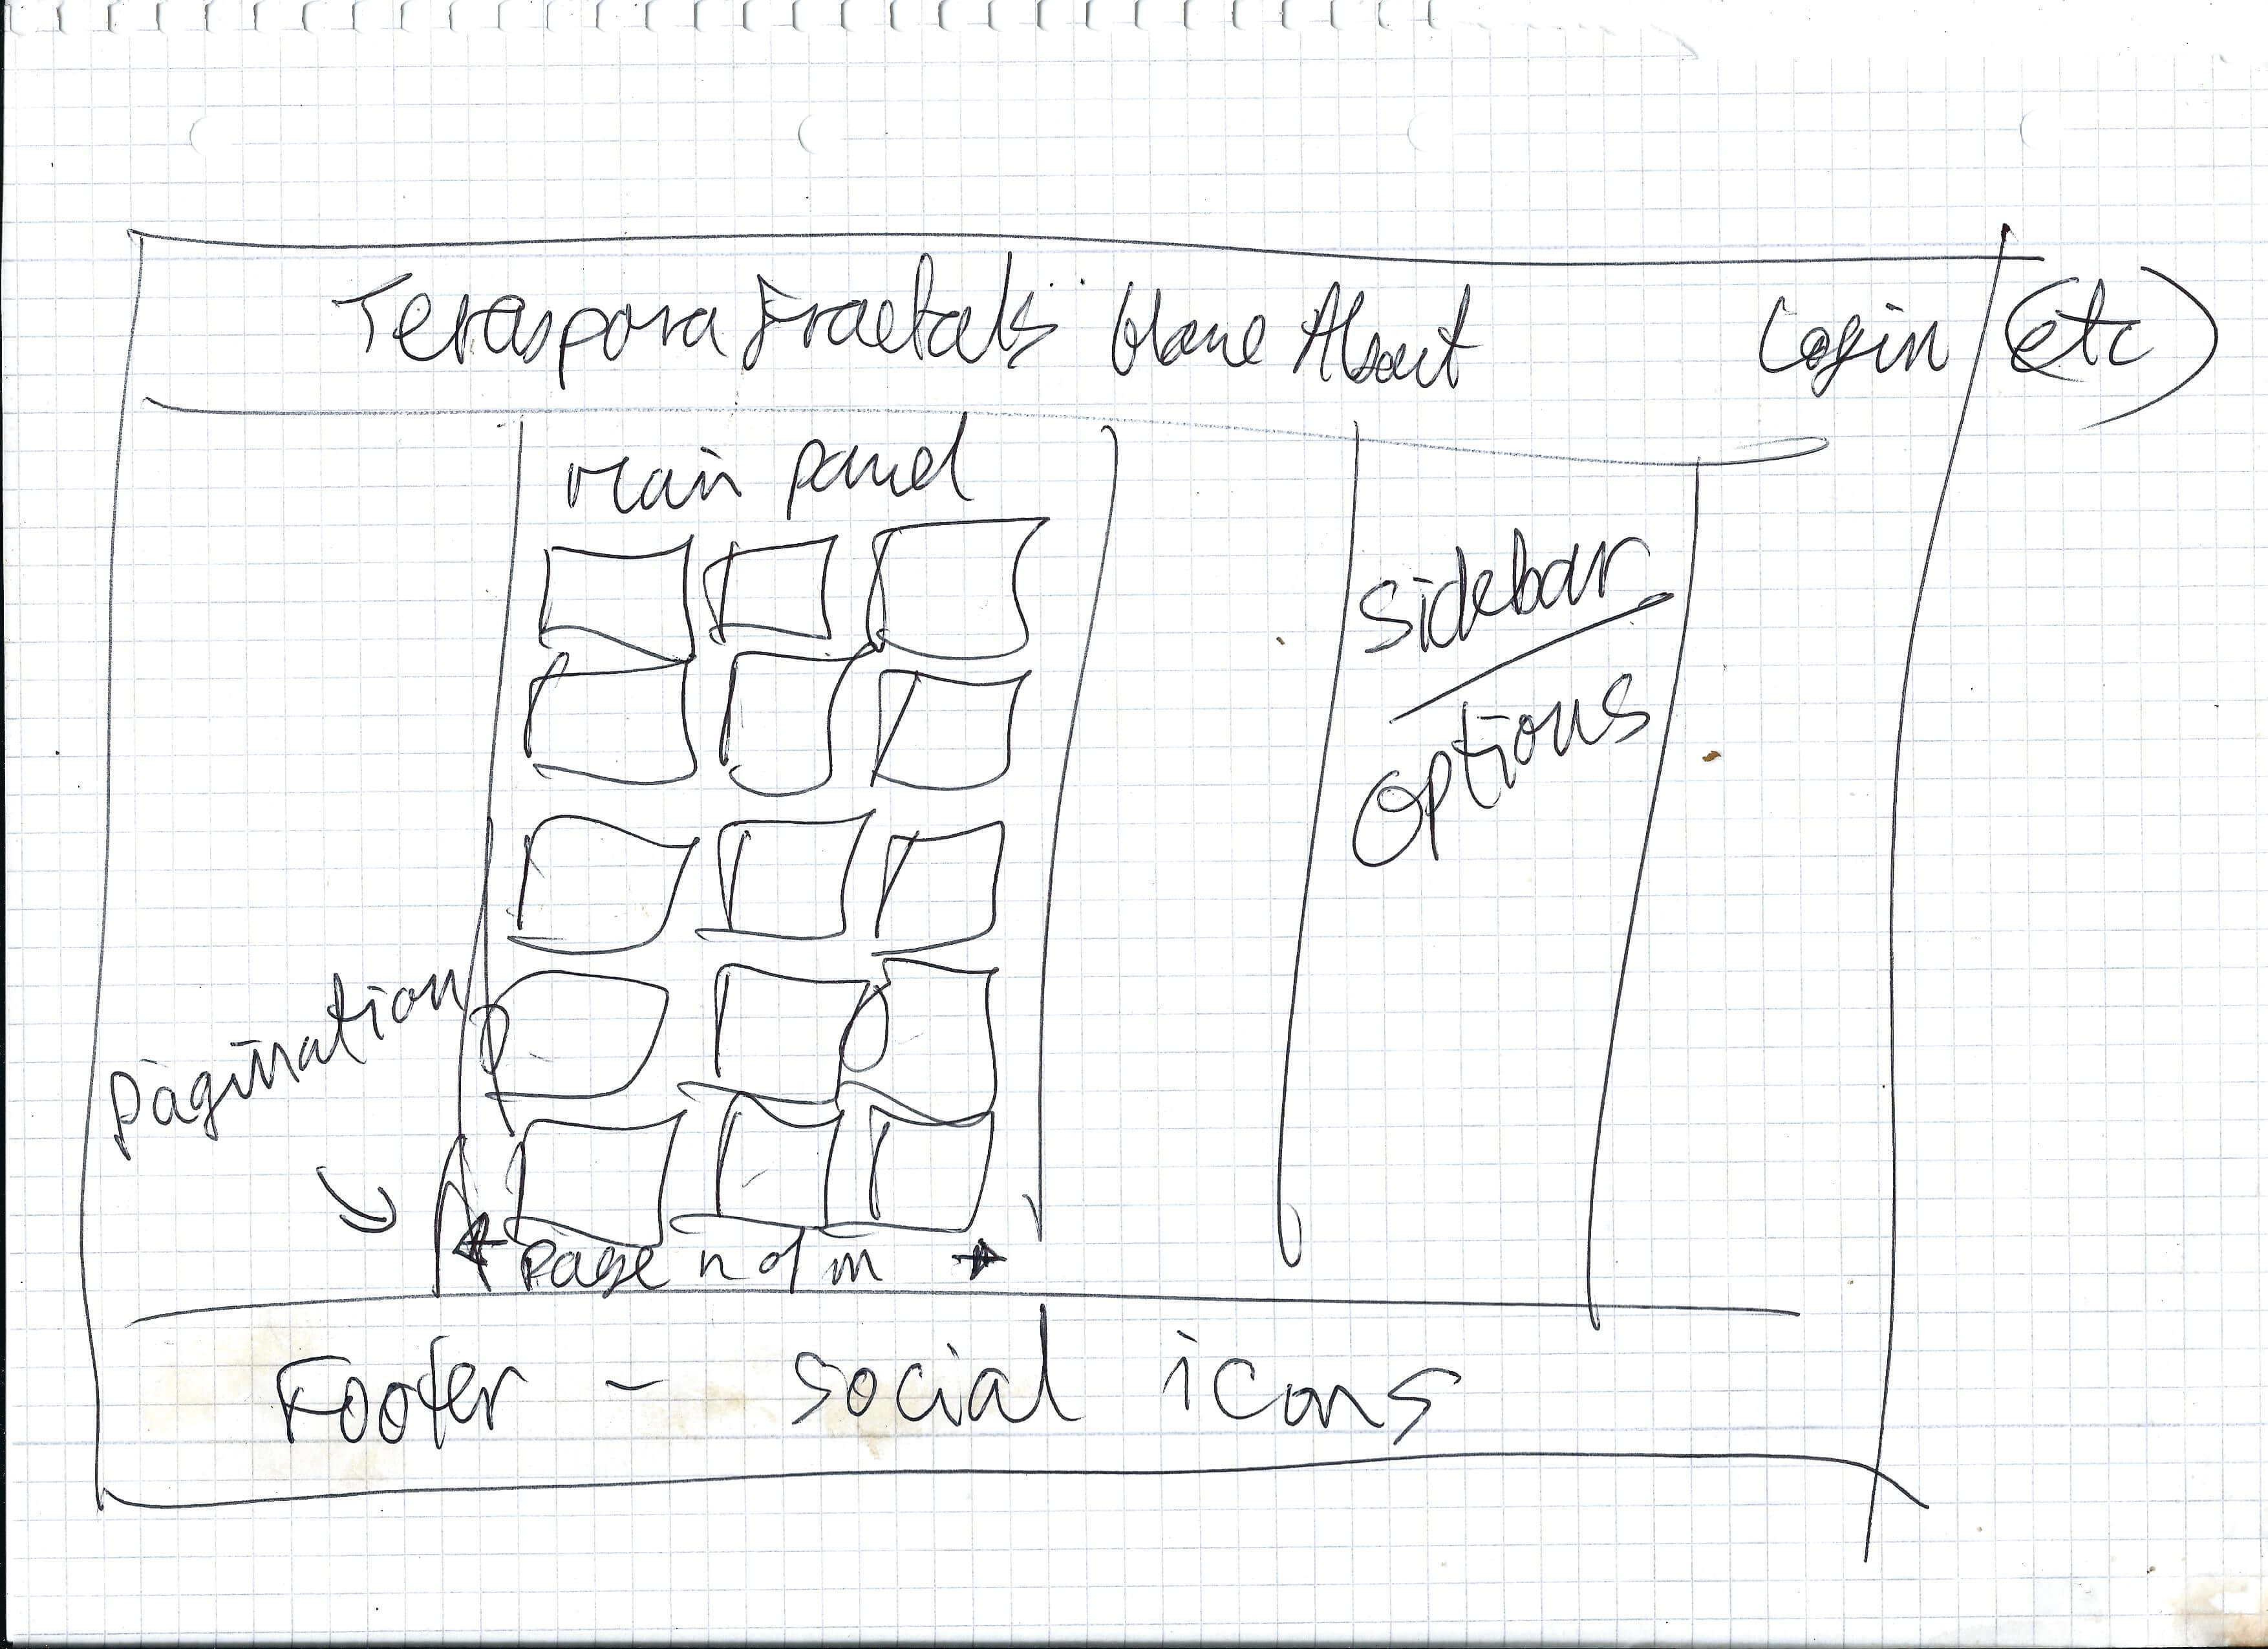 Teraspora Fractals Home About Login (etc)
Main panel
Sidebar
options
Pagination
page n of m
Footer - social icons